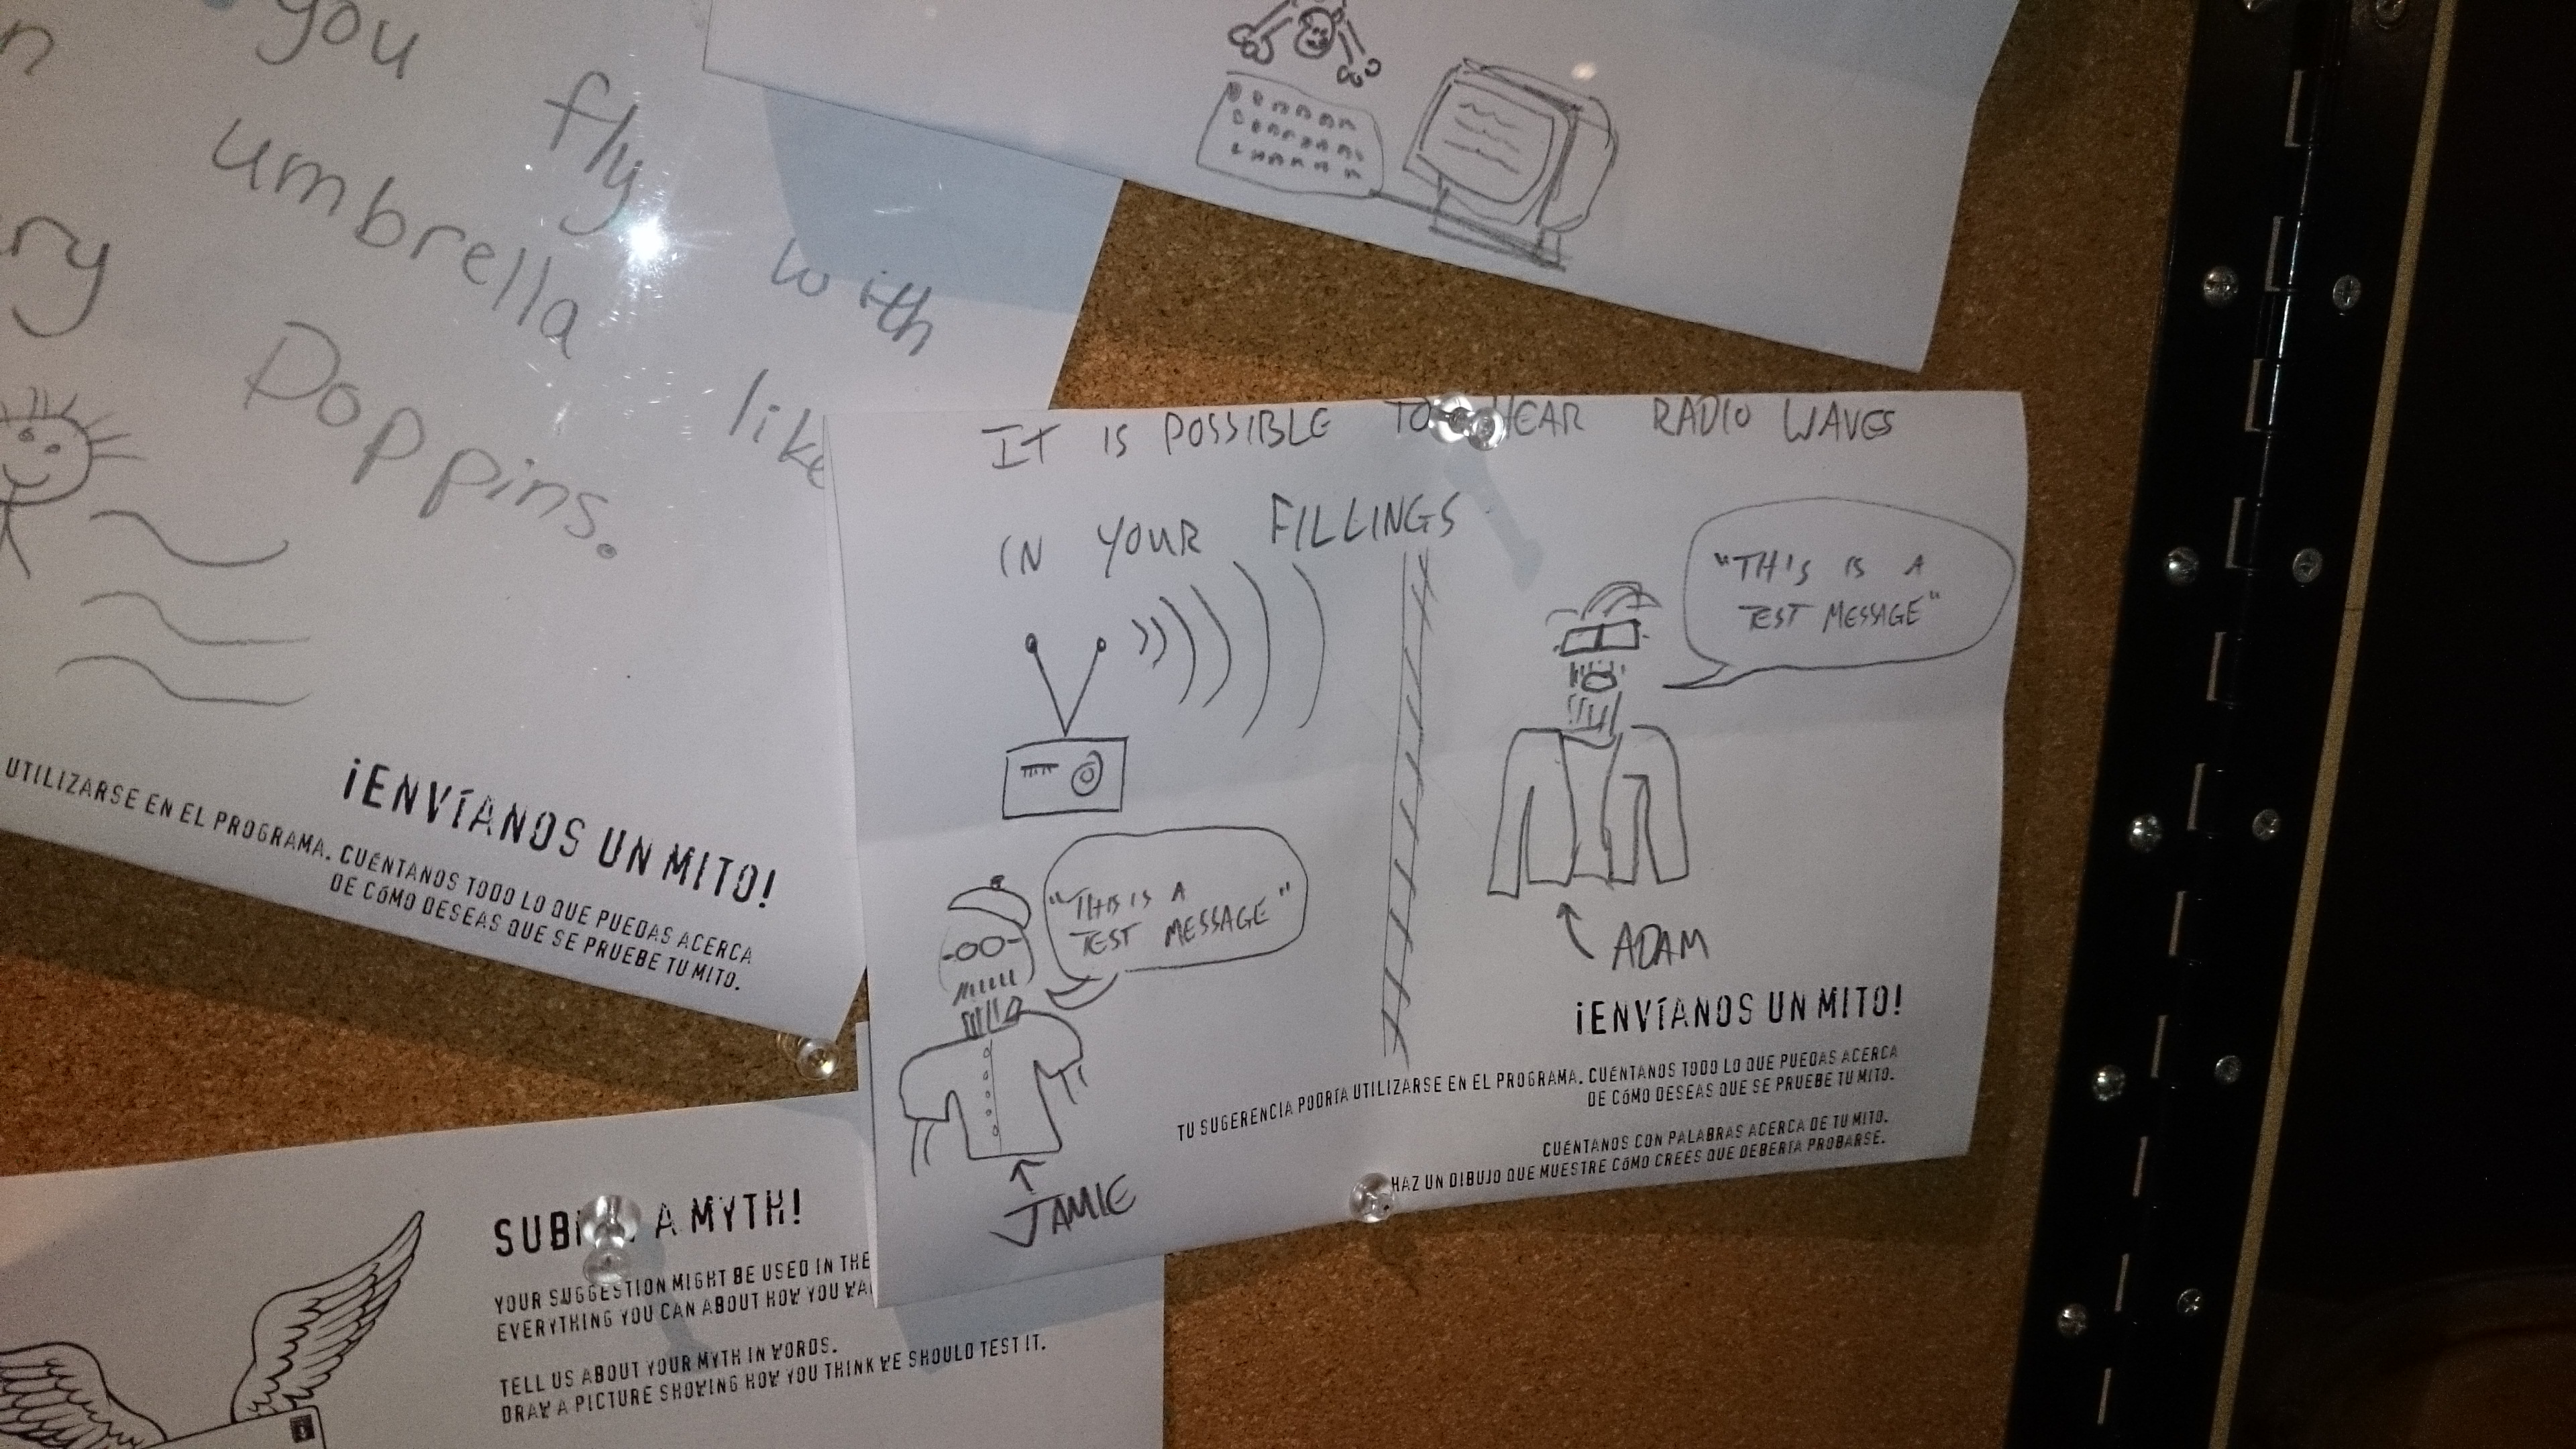 you fly with
umbrella like
ry Poppins.
¡ENVÍANOS UN MITO!
UTILIZARSE EN EL PROGRAMA. CUÉNTANOS TODO LO QUE PUEDAS ACERCA
DE CÓMO DESEAS QUE SE PRUEBE TU MITO.
IT IS POSSIBLE TO HEAR RADIO WAVES
IN YOUR FILLINGS
"THIS IS A
TEST MESSAGE"
"THIS IS A
TEST MESSAGE"
ADAM
JAMIE
¡ENVÍANOS UN MITO!
TU SUGERENCIA PODRÍA UTILIZARSE EN EL PROGRAMA. CUÉNTANOS TODO LO QUE PUEDAS ACERCA
DE CÓMO DESEAS QUE SE PRUEBE TU MITO.
CUÉNTANOS CON PALABRAS ACERCA DE TU MITO.
HAZ UN DIBUJO QUE MUESTRE CÓMO CREES QUE DEBERÍA PROBARSE.
SUBMIT A MYTH!
YOUR SUGGESTION MIGHT BE USED IN THE
EVERYTHING YOU CAN ABOUT HOW YOU WA
TELL US ABOUT YOUR MYTH IN WORDS.
DRAW A PICTURE SHOWING HOW YOU THINK WE SHOULD TEST IT.